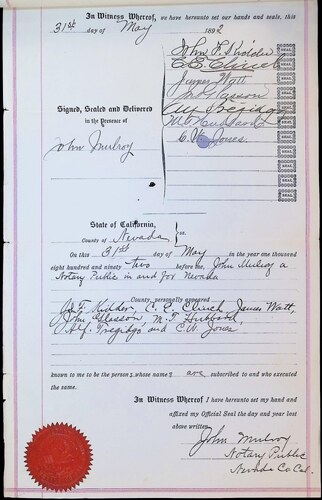 In Witness Whereof, we have hereunto set our hands and seals, this
31st day of May 1892
John F. Kidder
C. E. Clinch
James Watt
Jno Glasson
Alf Tregidgo
M. T. Hubbard
C. W. Jones.
Signed, Sealed and Delivered
in the Presence of
John Mulroy
SEAL
SEAL
SEAL
SEAL
SEAL
SEAL
SEAL
State of California,
County of Nevada ss.
On this 31st day of May in the year one thousand
eight hundred and ninety two before me, John Mulroy a
Notary Public in and for Nevada
County, personally appeared
J. F. Kidder, C. E. Clinch, James Watt,
John Glasson, M. T. Hubbard,
Alf. Tregidgo and C. W. Jones
known to me to be the persons whose names are subscribed to and who executed
the same.
In Witness Whereof I have hereunto set my hand and
affixed my Official Seal the day and year last
above written.
John Mulroy
Notary Public
Nevada Co. Cal.